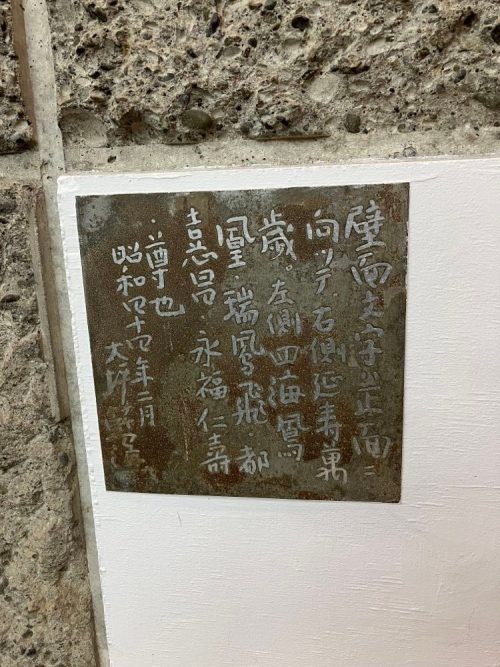 壁面文字正面ニ
向ッテ.右側延寿萬
歳。左側四海鳳
凰・瑞鳳飛・都
昌・永福仁壽
・尊也
昭和四十四年二月
大坪